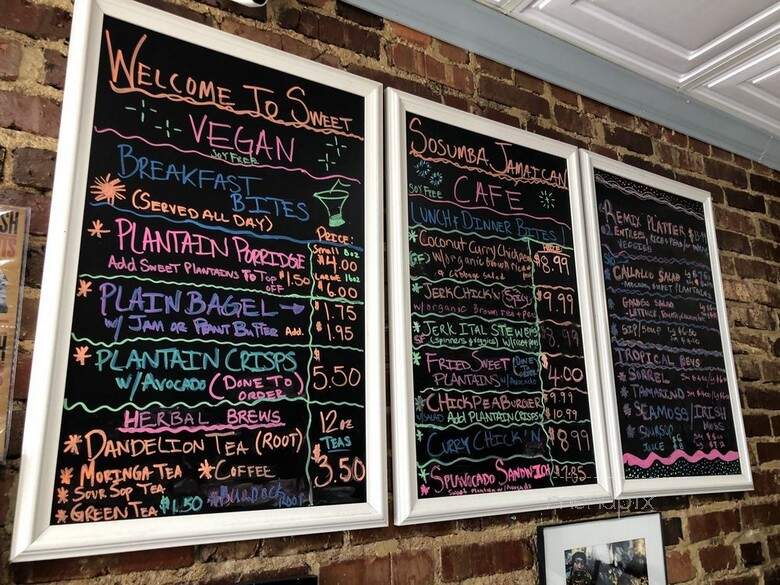 WELCOME TO SWEET
VEGAN
SOY FREE
BREAKFAST
BITES
(SERVED ALL DAY)
PRICE:
PLANTAIN PORRIDGE
Small 8oz
$4.00
Add SWEET PLANTAINS TO TOP $1.50
OFF
LARGE 16oz
$6.00
PLAIN BAGEL → $1.75
W/ JAM OR PEANUT BUTTER Add. $1.95
PLANTAIN CRISPS
W/AVOCADO (DONE TO ORDER)
$5.50
HERBAL BREWS
12oz
TEAS
DANDELION TEA (ROOT)
3.50
MORINGA TEA * COFFEE
SOUR SOP TEA
GREEN TEA $1.50 * BURDOCK ROOT
SOSUMBA JAMAICAN
SOY FREE
CAFE
LUNCH & DINNER BITES!
COCONUT CURRY CHICKPEA $8.99
(GF) W/ORGANIC BROWN RICE
& CABBAGE SALAD
JERK CHICK'N SPICY $9.99
W/ORGANIC BROWN RICE + PEAS
JERK ITAL STEW $8.99
(SPINNERS & VEGGIES) W/RICE + PEAS
FRIED SWEET
PLANTAINS
$4.00
CHICKPEA BURGER $9.99
W/SALAD Add PLANTAIN CRISPS $10.99
CURRY CHICK'N $8.99
SPLUNOCADO SANDWICH $7.85
Sweet Plantain w/Avocado
REMIX PLATTER
ENTREES, RICE & PEAS,
VEGGIES
CALLALOO SALAD
SWEET PLANTAINS
GARDEN SALAD
SIP/SOUP
TROPICAL BEVS
SORREL
TAMARIND
SEAMOSS/IRISH
MOSS
JUICE